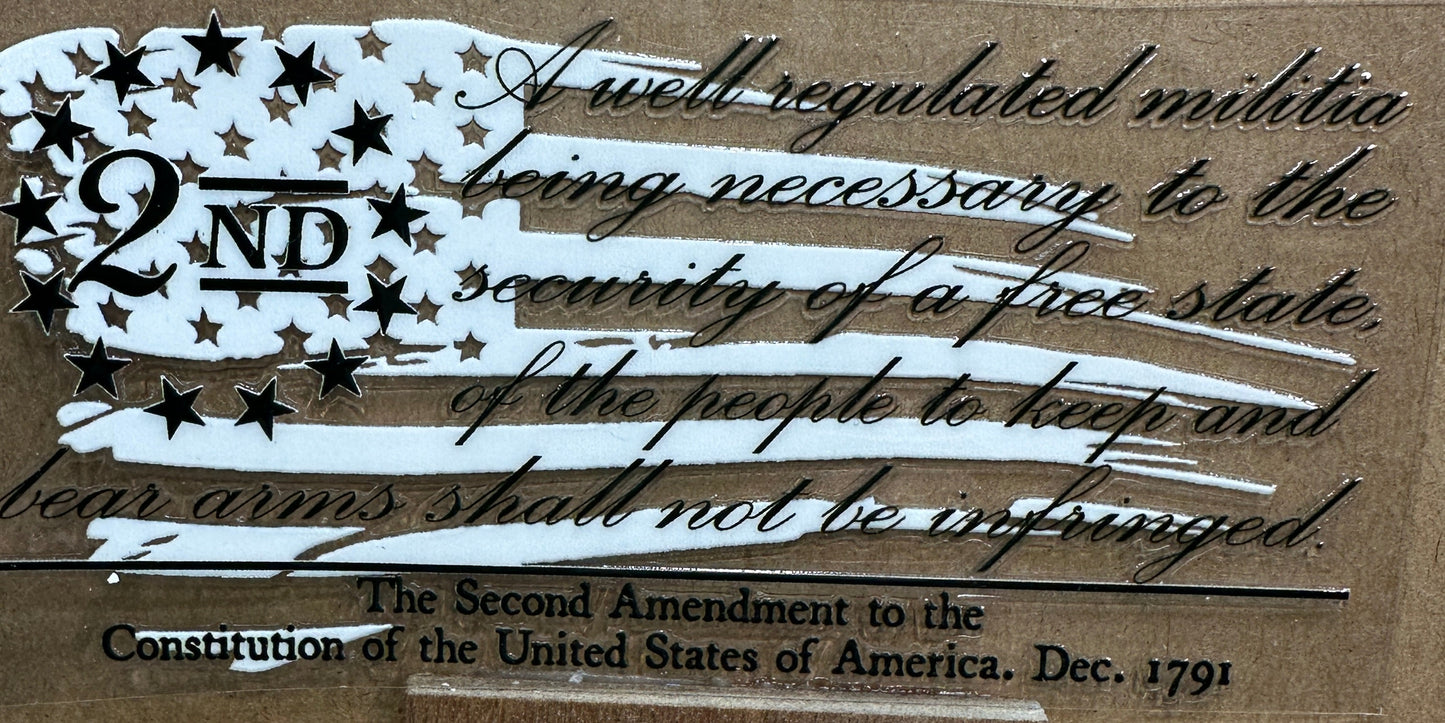 2ND
A well regulated militia
being necessary to the
security of a free state,
of the people to keep and
bear arms shall not be infringed.
The Second Amendment to the
Constitution of the United States of America. Dec. 1791